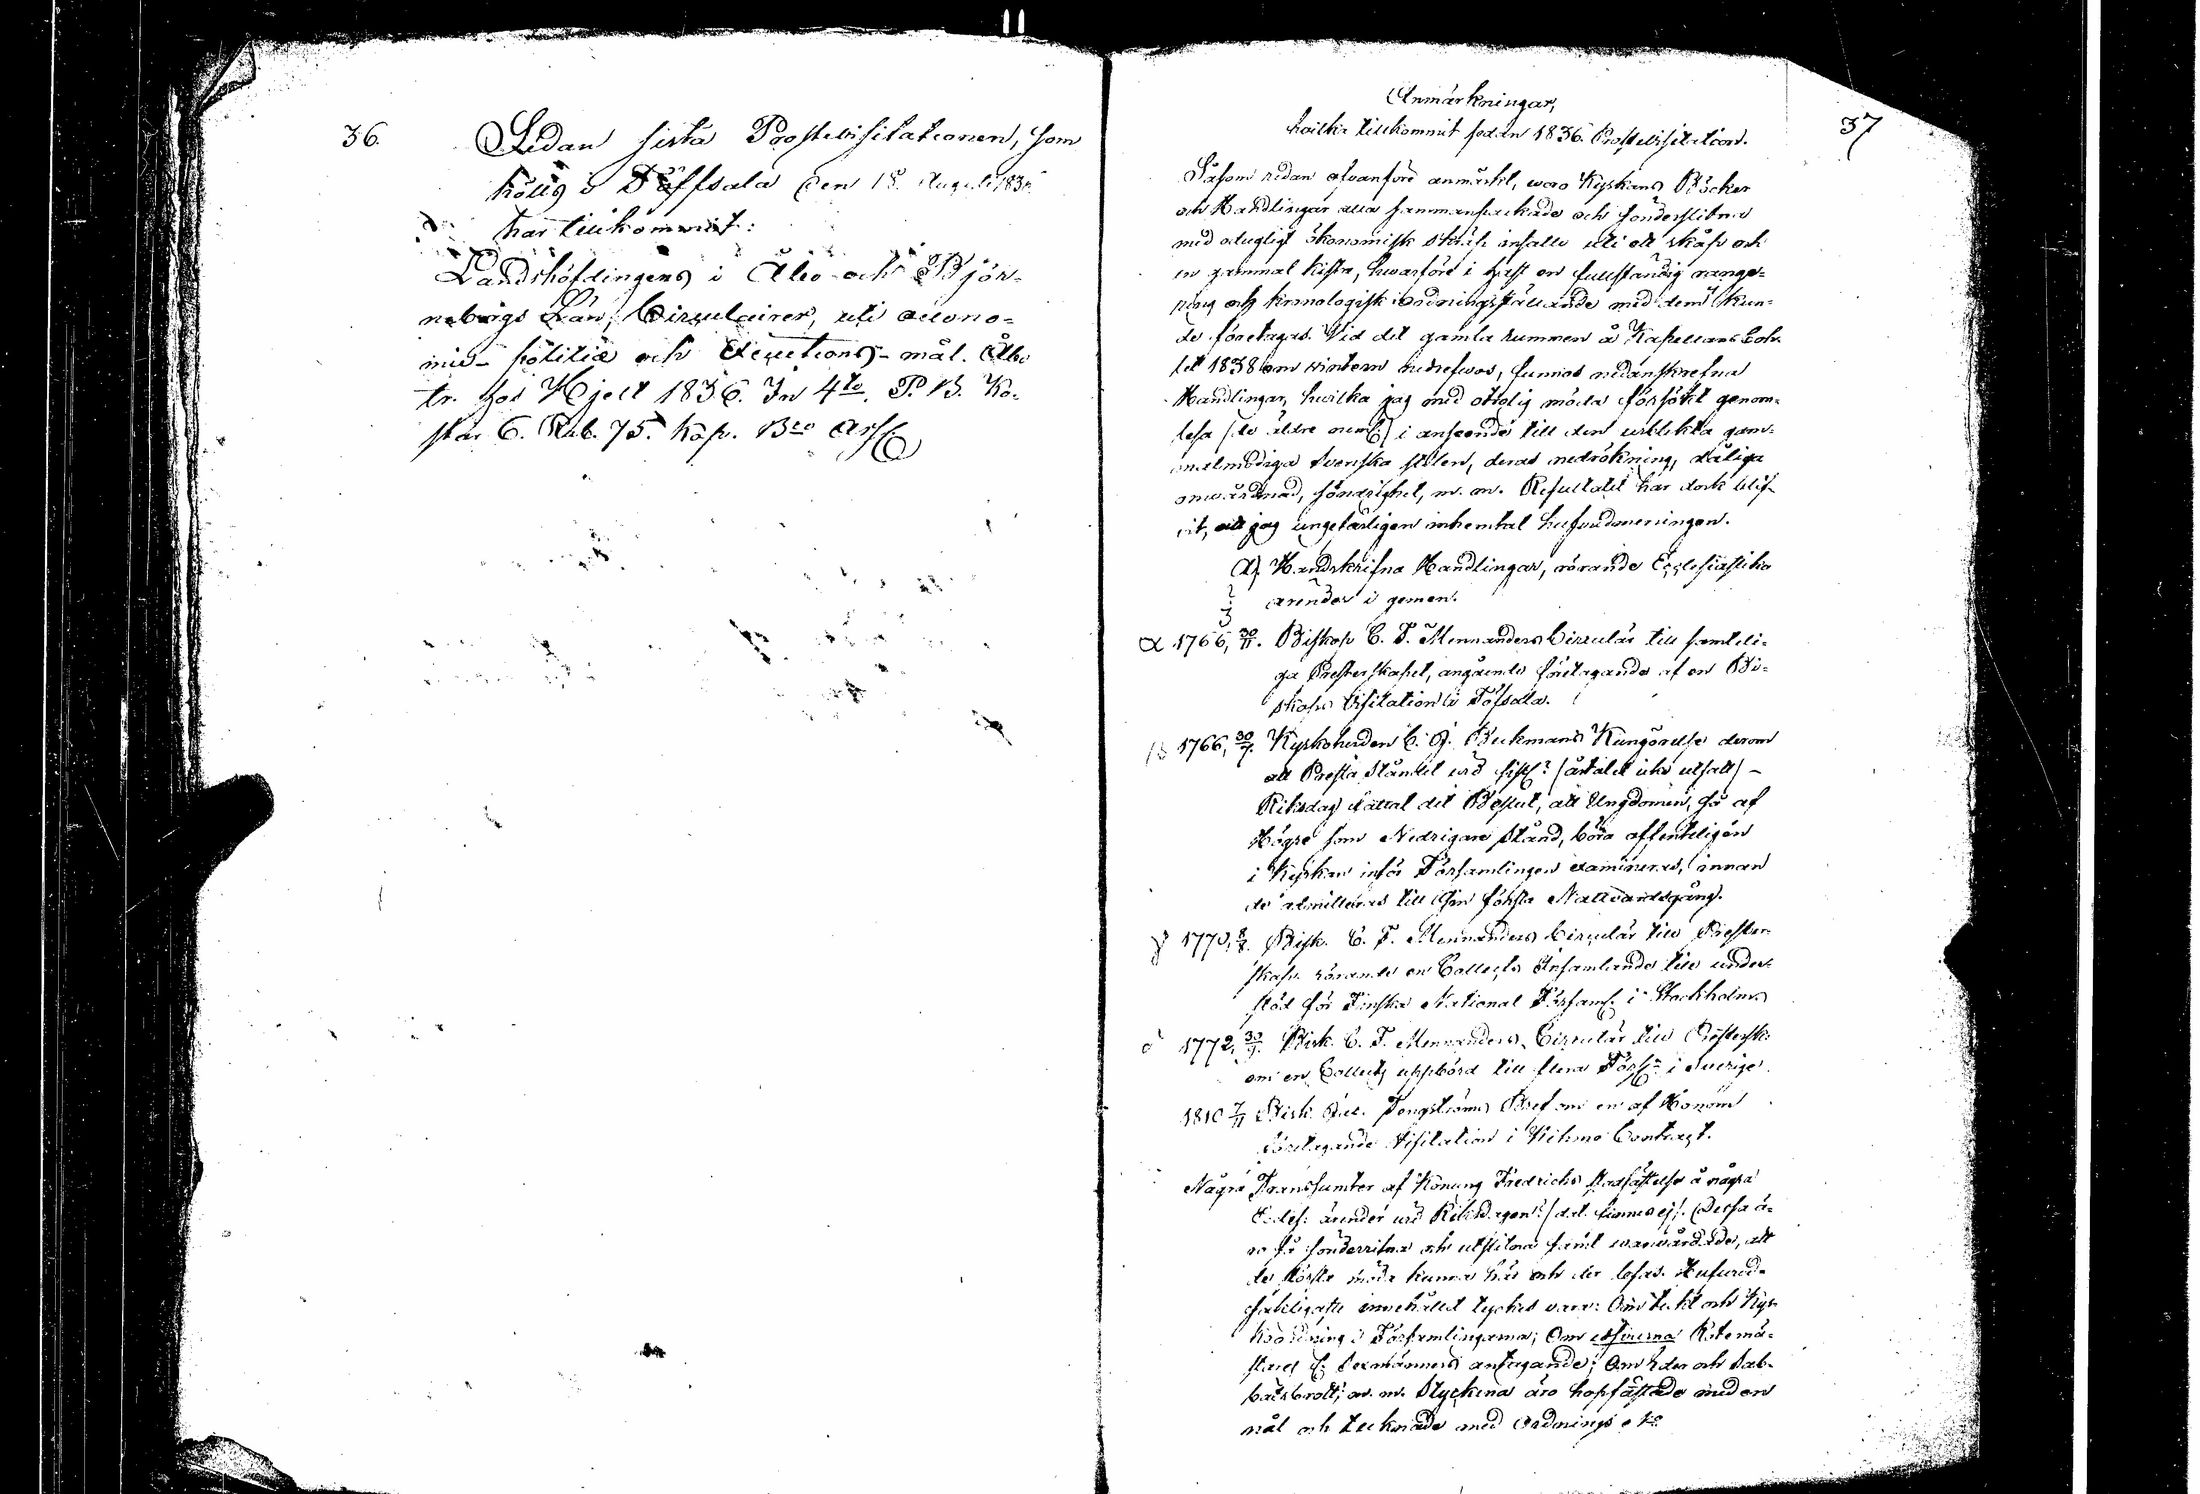 36.
Sedan sista Prostevisitationen, som
hölls i Töffsala den 18. Augusti 1836
har tillkommit:
Landshöfdingens i Åbo och Björ-
neborgs Län, Circulairer, uti oecono-
mie- politiæ och Executions-mål. Åbo
tr. hos Hjelt 1836. In 4to. P. B. Ko-
star 6. Rub. 75. kop. Bco Ass.
37
Anmärkningar,
hvilka tillkommit sedan 1836. Prostevisitation.
Såsom redan ofvanföre anmärkt, woro Kyrkans Böcker
och Handlingar alla sammanpackade och sönderslitna
med odugligt ökonomisk skräp infalle uti ett skåp och
en gammal kista, hwarföre i hast en fullständig range-
ring och kronologisk iordningsställande med dem kun-
de företagas. Vid det gamla rummen å Kapellans Bol-
let 1838 om wintern nedrefwos, funnos nedanskrefna
Handlingar, hwilka jag med otrolig möda försökt genom-
lesa (de äldre neml:) i anseende till den urblekta gam-
malmodiga Svenska stilen, deras nedrökning, dåliga
omvårdnad, söndrighet, m. m. Resultatet har dock blif-
vit, att jag ungefärligen inhemtat hufvudmeningen.
A). Handskrifna Handlingar, rörande Ecclesiastika
ärender i gemen.
α 1766, 30/11. Biskop C. F. Mennanders Circulär till samteli-
ga Presterskapet, angående företagande af en Bi-
skops Visitation i Töfsala.
β 1766, 30/7. Kyrkoherden C. J. Beckmans Kungörelse derom
att Presta Ståndet wid sist? (årtalet icke utsatt) -
Riksdag fattat det Beslut, att Ungdomen, så af
Högre som Nedrigare Stånd, böra offenteligen
i Kyrkan inför Församlingen examineras, innan
de admitteras till sin första Nattvardsgång.
γ 1770, 8/8. Bisk. C. F. Mennanders Circulär till Prester-
skap. rörande en Collects Insamlande till under-
stöd för Finska National Förs: i Stockholm
δ 1772, 30/9. Bisk. C. F. Mennanders Circulär till Prestersk:
om en Collects uppbörd till flera Förs:r i Sverige.
1810 7/11 Bisk. Jac. Tengströms Bref om en af Honom
företagande Visitation i Wehmo Contract.
Några Transumter af Konung Fredrichs stadfästelse å några
Eccles: ärender wid Riksdagen? (dat. finnes ej). Dessa ä-
ro så sönderrifna och utslitna samt wanvårdade, att
de största möda kunna här och der läsas. Hufvud-
sakligaste innehållet tyckes vara: Om tukt och Kyr-
koordning i Församlingarna; Om Rotemä-
stares l: Sexmänners antagande; Om Eder och Sab-
batsbrott; m. m. Styckena äro hopfästade med en
nål och tecknade med Ordnings